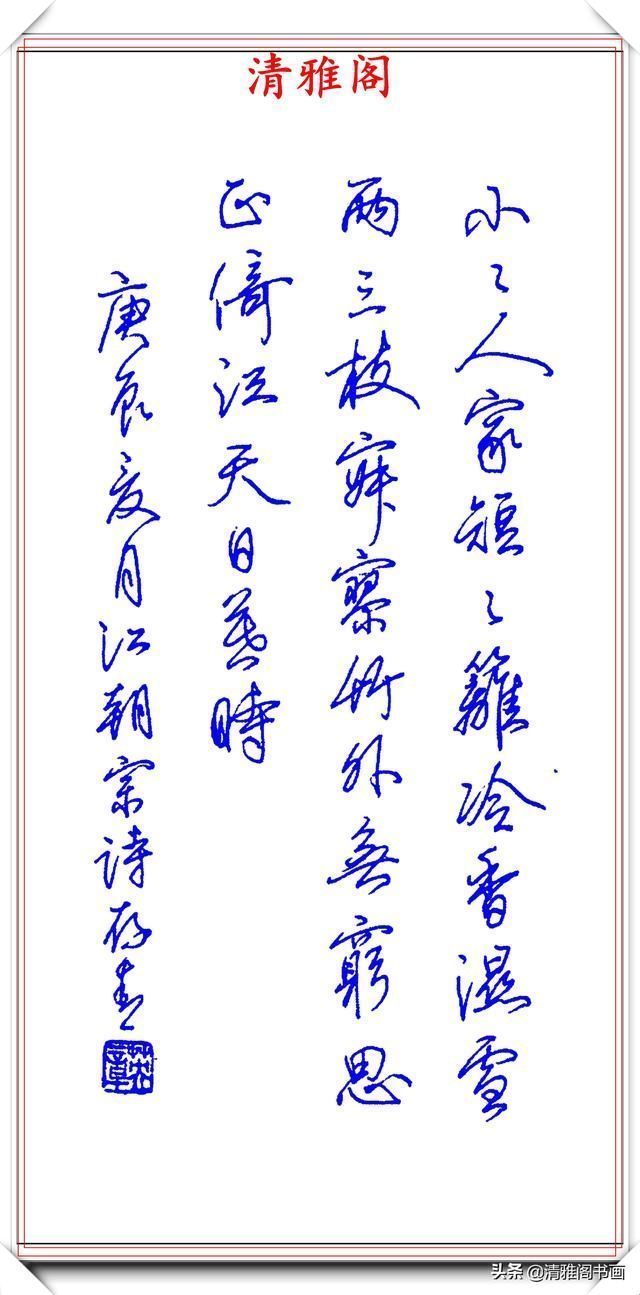 清雅阁
小〻人家短〻籬冷香湿雪
兩三枝寂寥竹外無窮思
正倚江天日暮時
庚辰夏月江朝宗诗
头条 @清雅阁书画